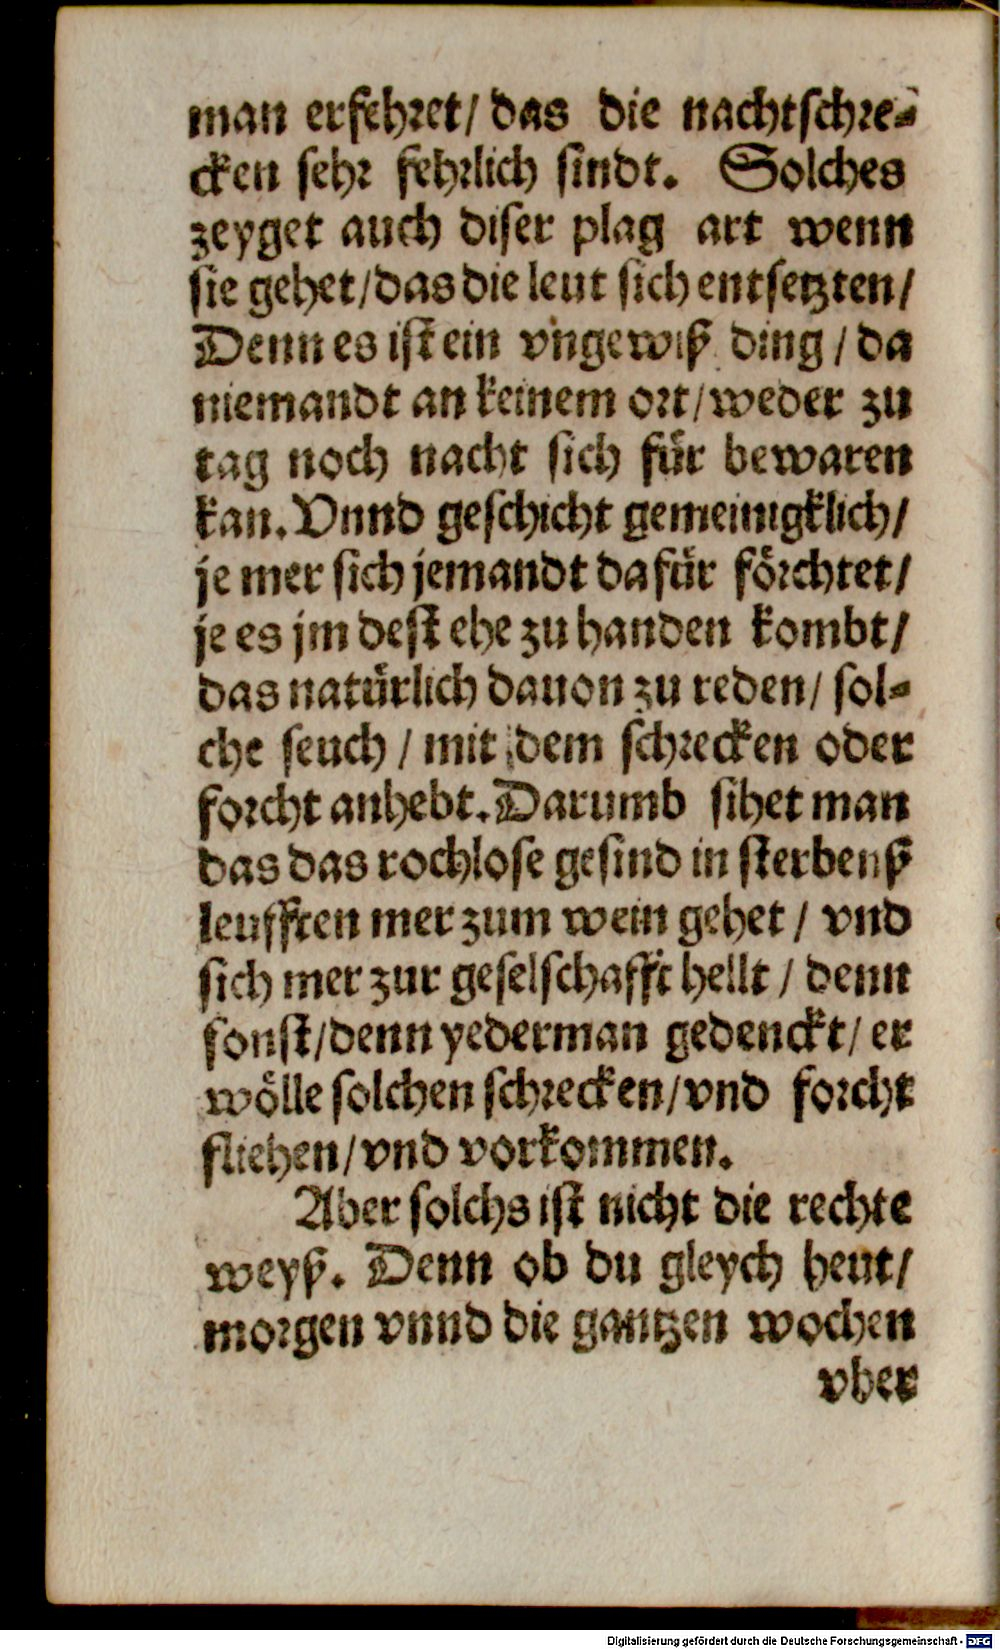 man erfehret/ das die nachtschre⸗
cken sehr fehrlich sindt. Solches
zeyget auch diser plag art wenn
sie gehet/das die leut sich entsetzten/
Denn es ist ein vngewiß ding / da
niemandt an keinem ort/weder zu
tag noch nacht sich für bewaren
kan. Vnnd geschicht gemeinigklich/
je mer sich jemandt dafür förchtet/
je es jm dest ehe zu handen kombt/
das natürlich dauon zu reden/ sol⸗
che seuch / mit dem schrecken oder
forcht anhebt. Darumb sihet man
das das rochlose gesind in sterbenß
leufften mer zum wein gehet / vnd
sich mer zur geselschafft hellt / denn
sonst/denn yederman gedenckt/ er
wölle solchen schrecken/vnd forcht
fliehen/vnd vorkommen.
Aber solchs ist nicht die rechte
weyß. Denn ob du gleych heut/
morgen vnnd die gantzen wochen
vber
Digitalisierung gefördert durch die Deutsche Forschungsgemeinschaft - DFG